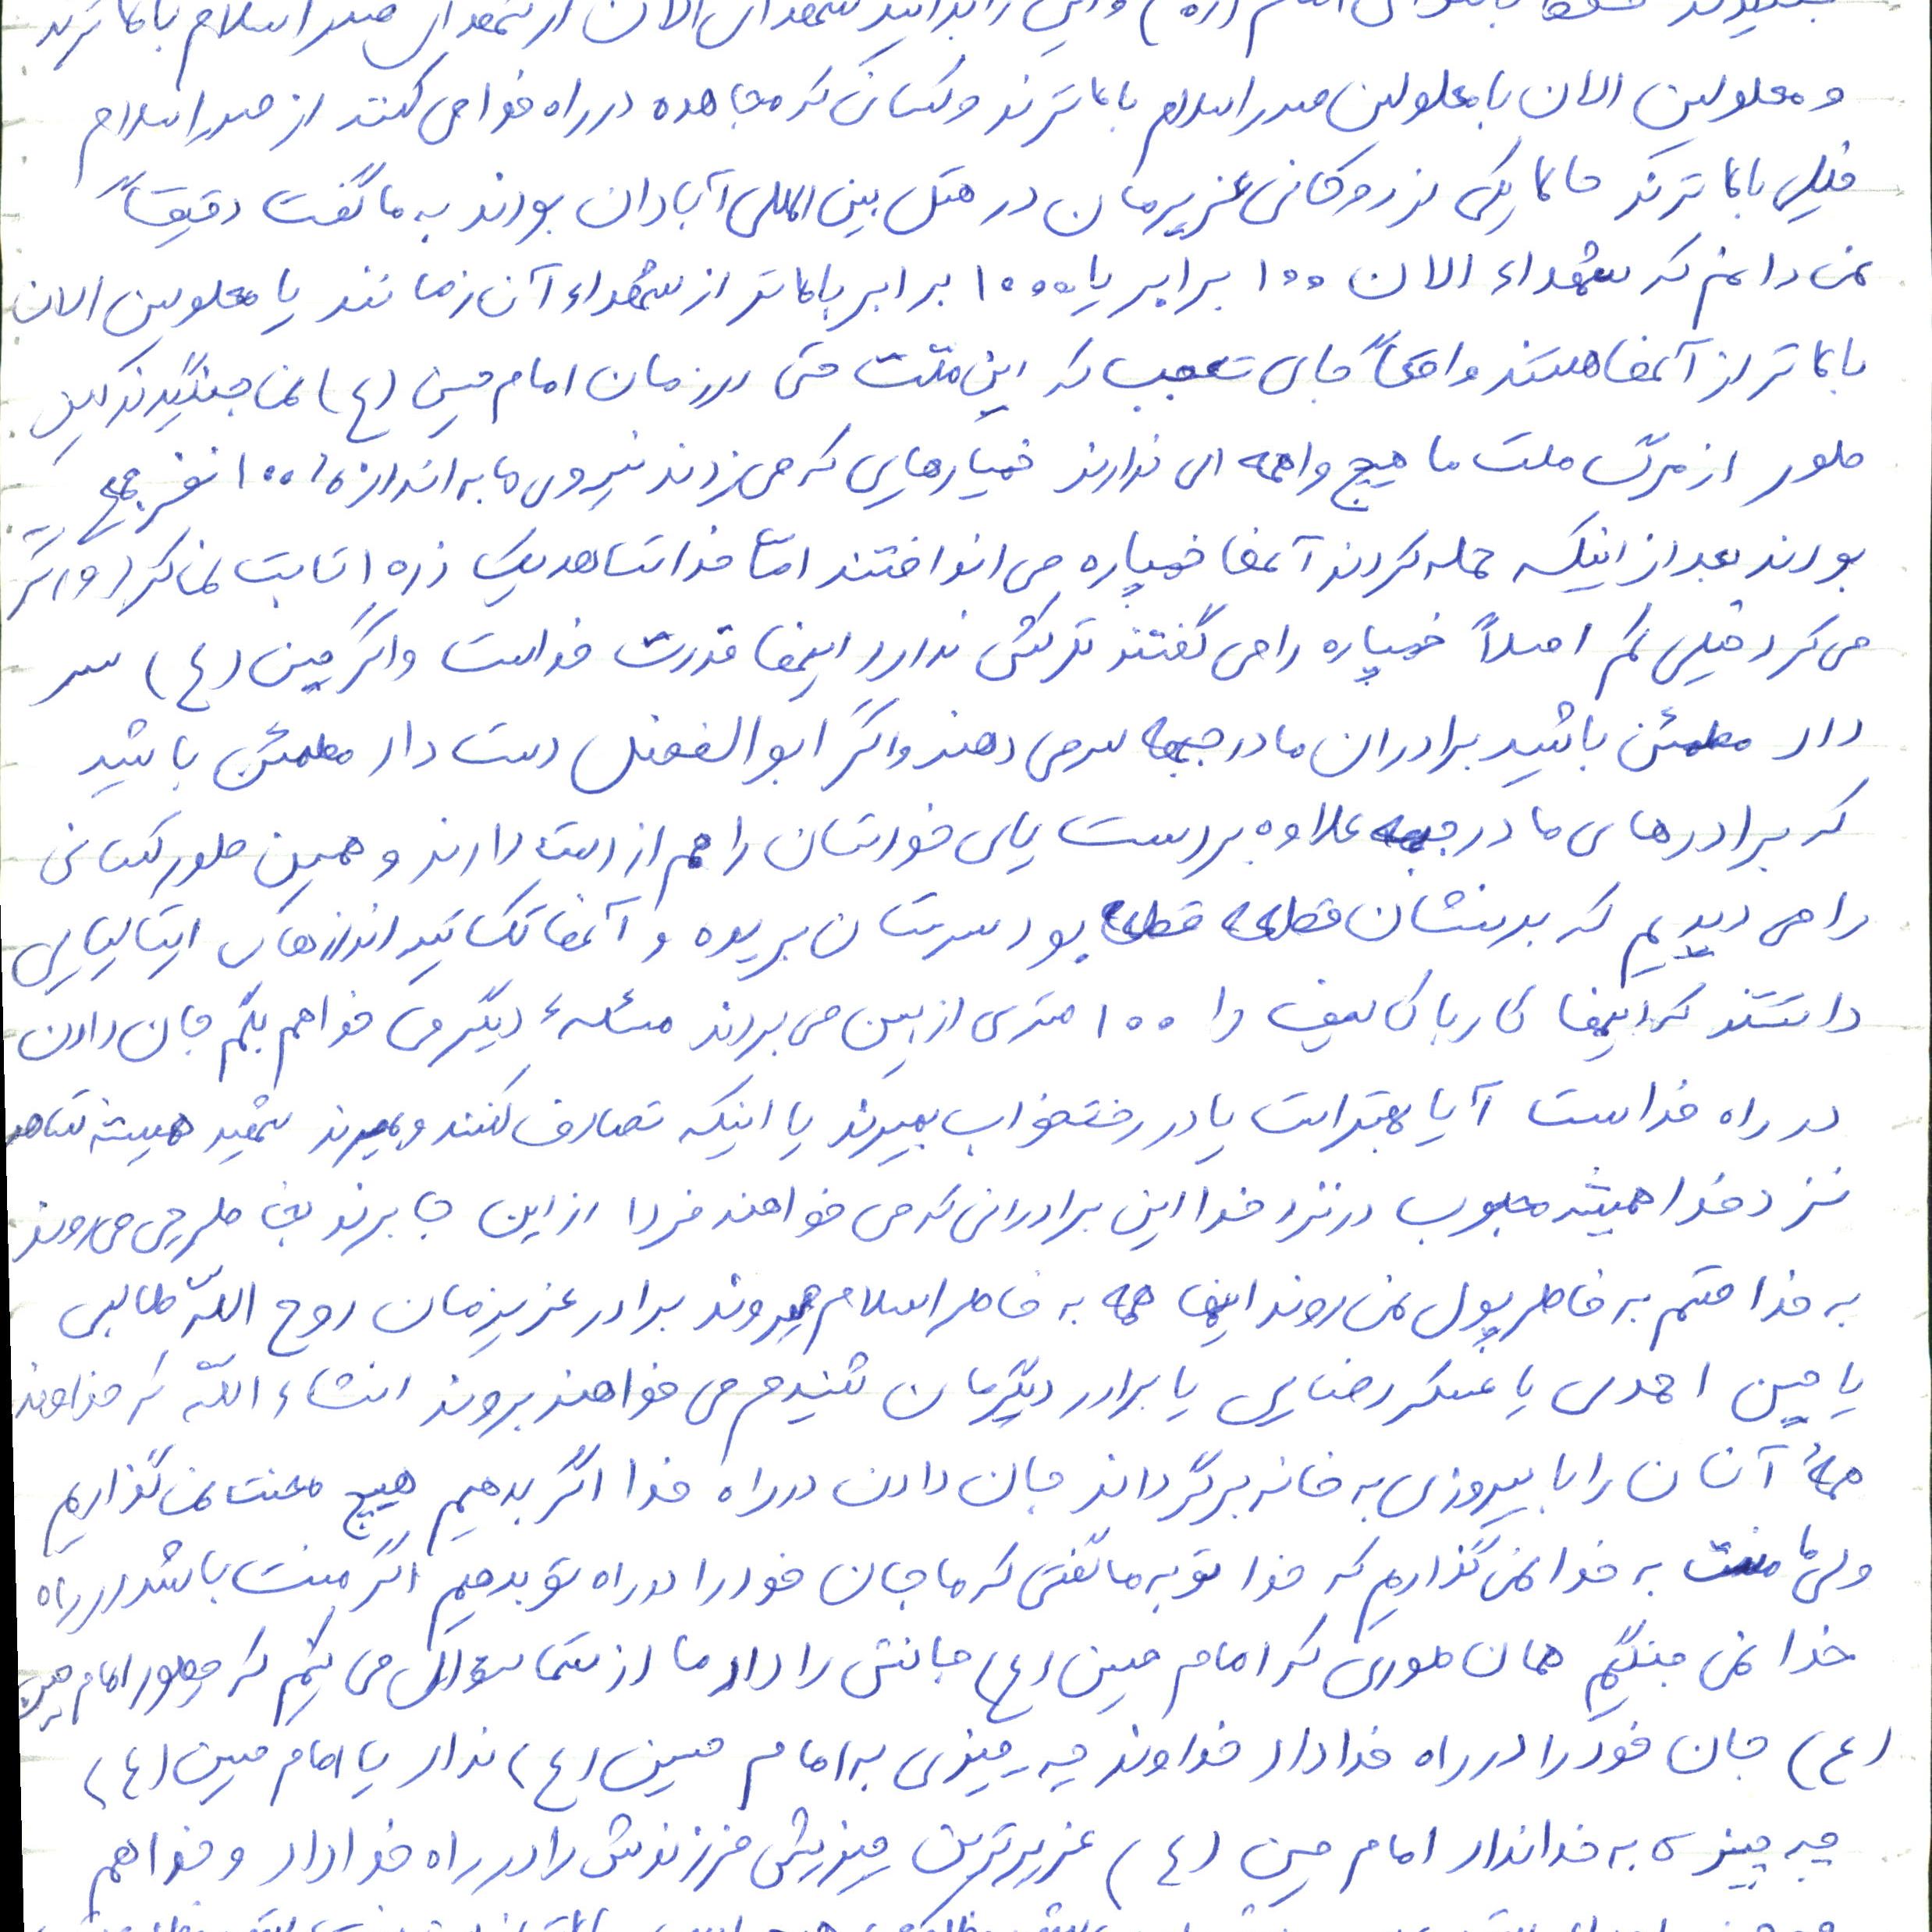 را بدانید شهدای الان از شهدای صدر اسلام بالاترند
و معلولین الان با معلولین صدر اسلام بالاترند و کسانی که مجاهده در راه خدا می کنند از صدر اسلام
خیلی بالاترند حالا یکی از روحانی عزیزمان در هتل بین المللی آبادان بودند به ما گفت دقیقاً
نمی دانم که شهداء الان ۱۰۰ برابر یا ۱۰۰۰ برابر بالاتر از شهداء آن زمانند یا معلولین الان
بالاتر از آنها هستند واقعاً جای تعجب که این ملت حتی در زمان امام حسین (ع) نمی جنگیدند این
طور از مرگ ملت ما هیچ واهمه ای ندارند خمپارهایی که می زدند نیروی ما به اندازه ۱۰۰ نفر جمع
بودند بعد از اینکه حمله کردند آنها خمپاره می انداختند امّا خدا شاهد یک ذره اثابت نمی کرد و اگر
می کرد خیلی کم اصلاً خمپاره را می گفتند ترکش ندارد اینها قدرت خداست و اگر حسین (ع) سر
داد مطمئن باشید برادران ما در جبهه سر می دهند و اگر ابوالفضل دست داد مطمئن باشید
که برادرهای ما در جبهه علاوه بر دست پای خودشان را هم از دست دارند و همین طور کسانی
را می دیدیم که بدنشان قطعه قطعه بود سرشان بریده و آنها تک تیراندازهای ایتالیایی
داشتند که اینها کاربا کالیف را ۱۰۰ متری از بین می بردند مسئلهء دیگر می خواهم بگم جان دادن
در راه خداست آیا بهتر است یا در رختخواب بمیرند یا اینکه تصادف کنند و بمیرند شهید همیشه شاهد
نزد خدا همیشه محبوب در نزد خدا این برادرانی که می خواهند فردا از این جا برند بخاطر چی می روند
به خدا قسم به خاطر پول نمی روند اینها همه به خاطر اسلام میروند برادر عزیزمان روح اللّه طالبی
یا حسین احمدی یا عسکر رضایی یا برادر دیگرمان شنیدم می خواهند بروند انشاء اللّه که خداوند
همهٔ آنان را با پیروزی به خانه برگرداند جان دادن در راه خدا اگر بدهیم هیچ معنت نمی گذاریم
ولی ما منت به خدا نمی گذاریم که خدا تو به ما گفتی که ما جان خود را در راه تو بدهیم اگر منت باشد در راه
خدا نمی جنگیم همان طوری که امام حسین (ع) جانش را داد ما از شما سوال می کنم که چطور امام حسین
(ع) جان خود را در راه خدا داد خداوند چه چیزی به امام حسین (ع) نداد یا امام حسین (ع)
چه چیزی به خدا نداد امام حسین (ع) عزیزترین چیزیش فرزندش را در راه خدا داد و خدا هم